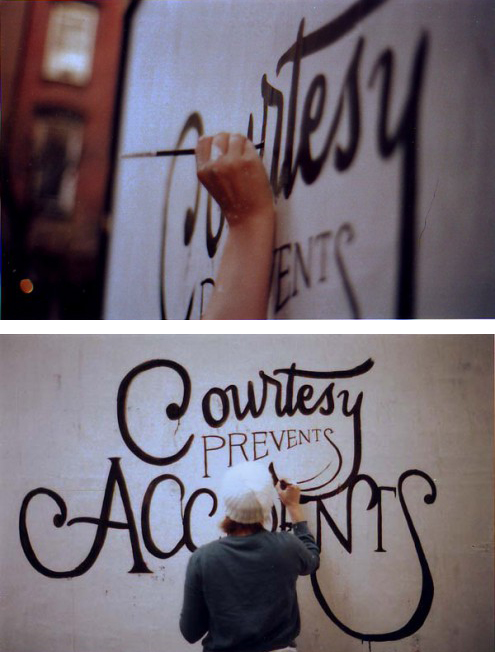 Courtesy
PREVENTS
Courtesy
PREVENTS
ACCIDENTS